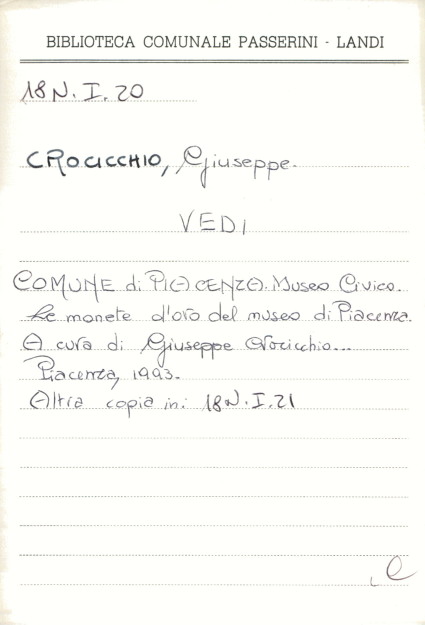 BIBLIOTECA COMUNALE PASSERINI - LANDI
18 N. I. 20
CROCICCHIO, Giuseppe.
VEDI
COMUNE di PIACENZA. Museo Civico.
Le monete d'oro del museo di Piacenza.
A cura di Giuseppe Crocicchio...
Piacenza, 1993.
Altra copia in: 18 N. I. 21